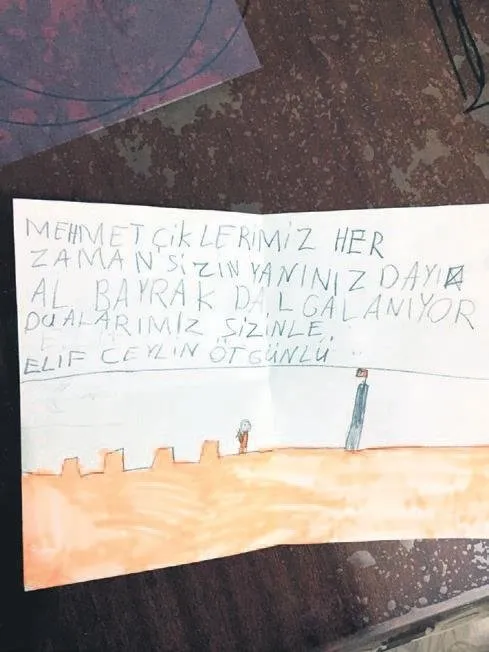 MEHMETÇİKLERİMİZ HER
ZAMAN SİZİN YANINIZDAYIZ
AL BAYRAK DALGALANIYOR
DUALARIMIZ SİZİNLE
ELİF CEYLİN ÖTGÜNLÜ